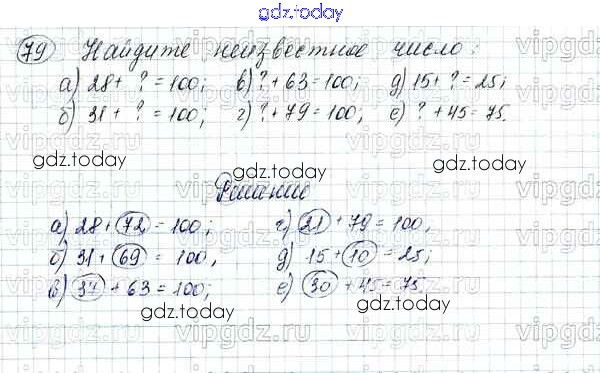 gdz.today
79 Найдите неизвестное число:
а) 28 + ? = 100; в) ? + 63 = 100; д) 15 + ? = 25;
б) 31 + ? = 100; г) ? + 79 = 100; е) ? + 45 = 75.
gdz.today gdz.today gdz.today
Решение
а) 28 + 72 = 100; г) 21 + 79 = 100,
б) 31 + 69 = 100, д) 15 + 10 = 25;
в) 37 + 63 = 100; е) 30 + 45 = 75.
gdz.today gdz.today
gdz.today